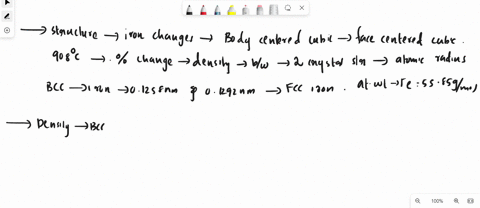 → structure → iron changes → Body centered cubic → face centered cubic.
908°C → % change → density → b/w → 2 crystal stn → atomic radius
BCC → iron → 0.1258nm & 0.1292nm → FCC iron. at.wt → Fe = 55.85g/mol
→ Density → BCC
100%